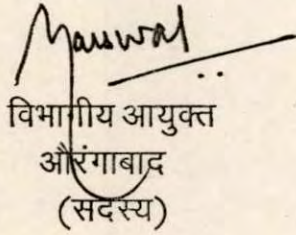 विभागीय आयुक्त
औरंगाबाद
(सदस्य)